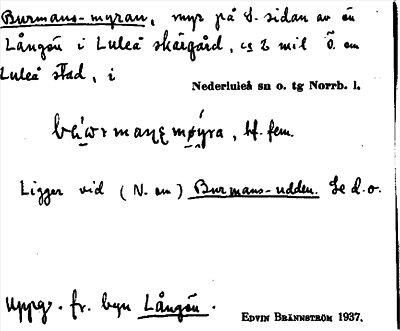 Burmans-myran, myr på S. sidan av ön
Långön i Luleå skärgård, c:a 2 mil Ö. om
Luleå stad, i
Nederluleå sn o. tg Norrb. l.
bf. fem.
Ligger vid (N. om) Burmans-udden. Se d.o.
Uppg. fr. byn Långön.
EDVIN BRÄNNSTRÖM 1937.